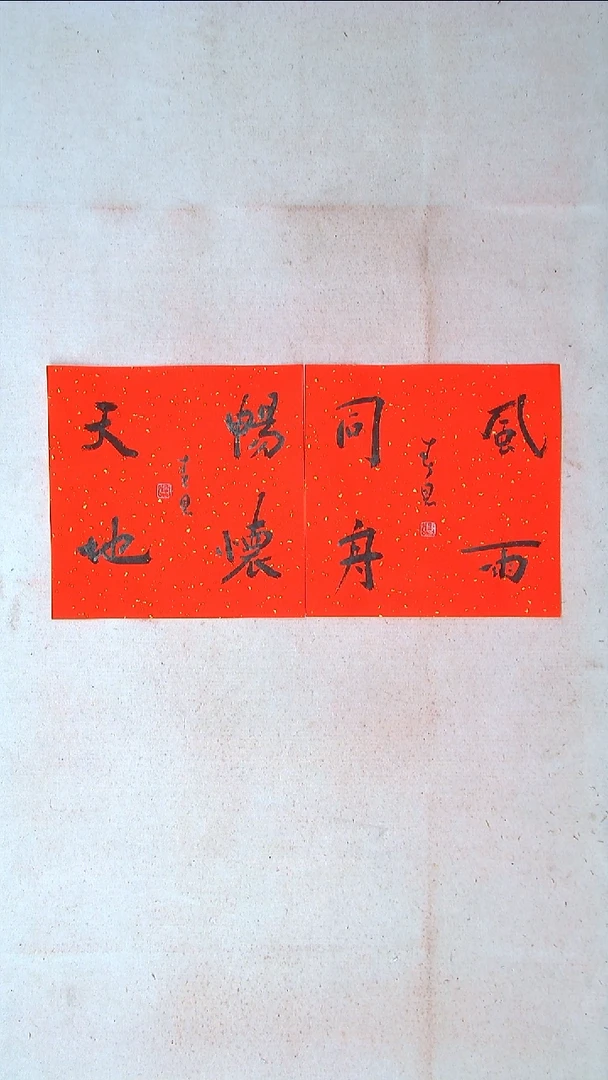 風雨
同舟
暢懷
天地